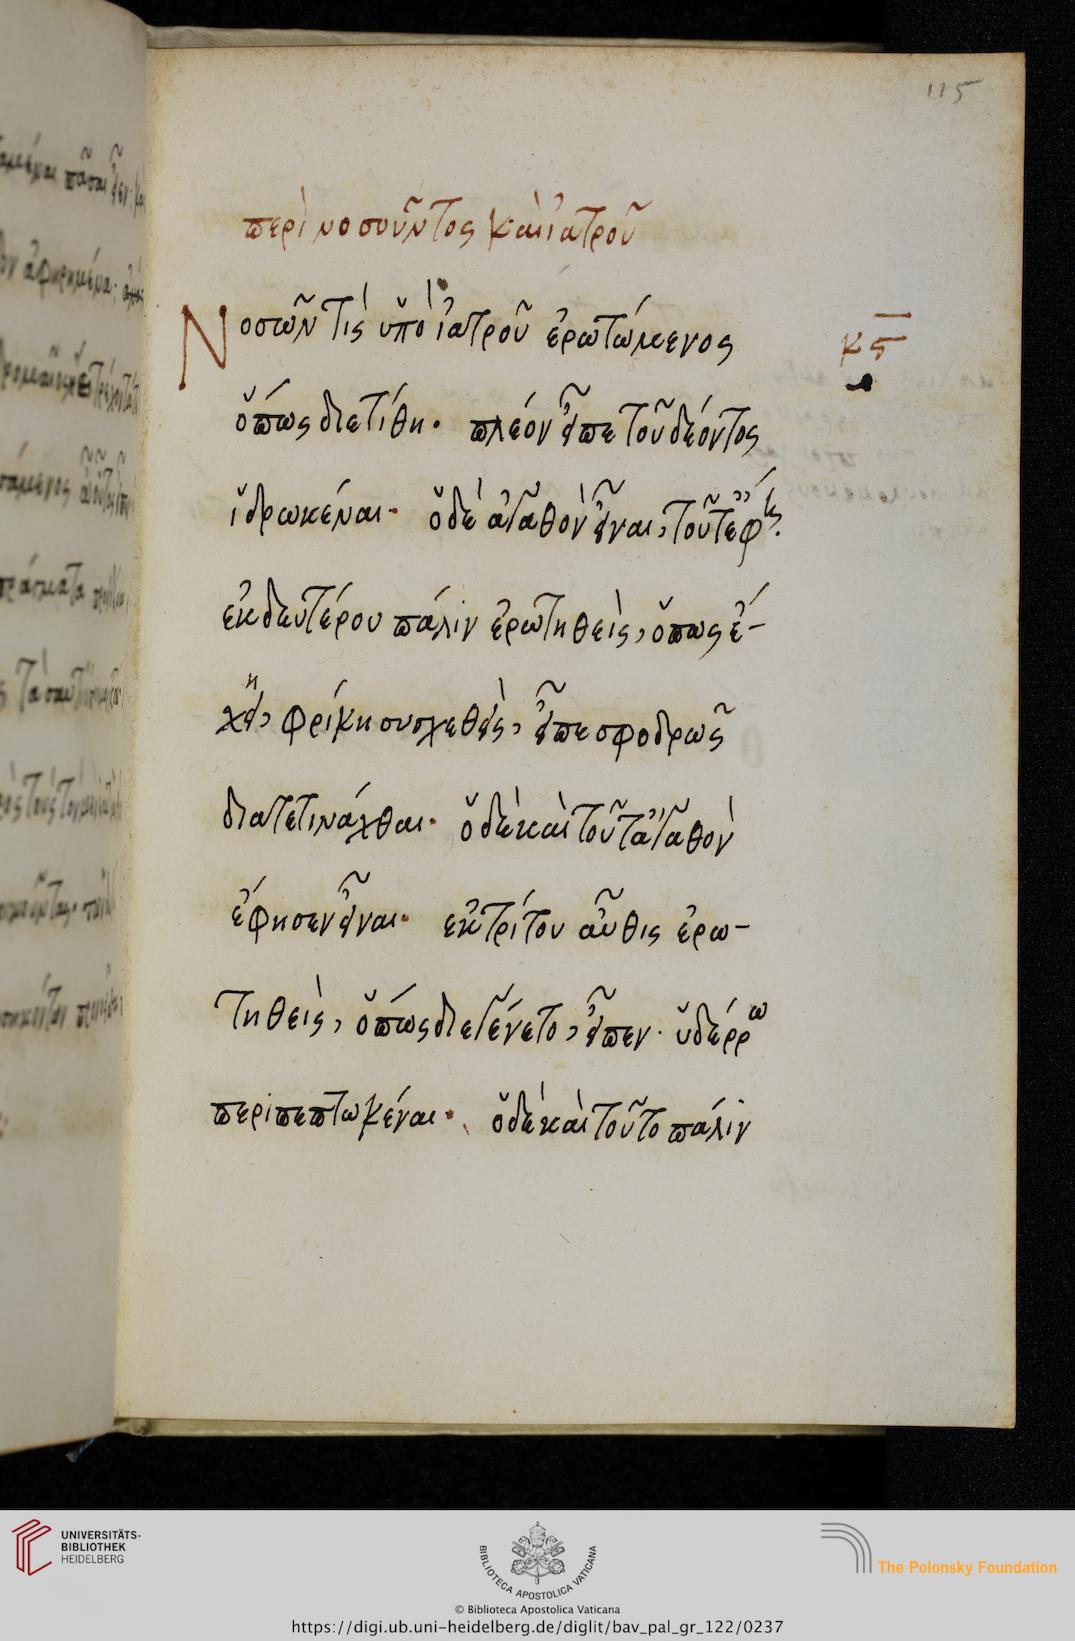 115
περὶ νοσοῦντος καὶ ἰατροῦ
Νοσῶν τίς ὑπὸ ἰατροῦ ἐρωτώμενος
κς
ὅπως διετίθη· πλέον εἶπε τοῦ δέοντος
ἱδρωκέναι· ὁ δὲ ἀγαθὸν εἶναι, τοῦτ ἔφη.
ἐκ δευτέρου πάλιν ἐρωτηθεὶς, ὅπως ἔ-
χει, φρίκη συσχεθεὶς, εἶπε σφοδρῶς
διατετινάχθαι· ὁ δὲ καὶ τοῦτ ἀγαθὸν
ἔφησεν εἶναι· ἐκ τρίτου αὖθις ἐρω-
τηθεὶς, ὅπως διεγένετο, εἶπεν· ὑδέρω
περιπεπτωκέναι· ὁ δὲ καὶ τοῦτο πάλιν
UNIVERSITÄTS-
BIBLIOTHEK
HEIDELBERG
BIBLIOTECA APOSTOLICA VATICANA
The Polonsky Foundation
© Biblioteca Apostolica Vaticana
https://digi.ub.uni-heidelberg.de/diglit/bav_pal_gr_122/0237